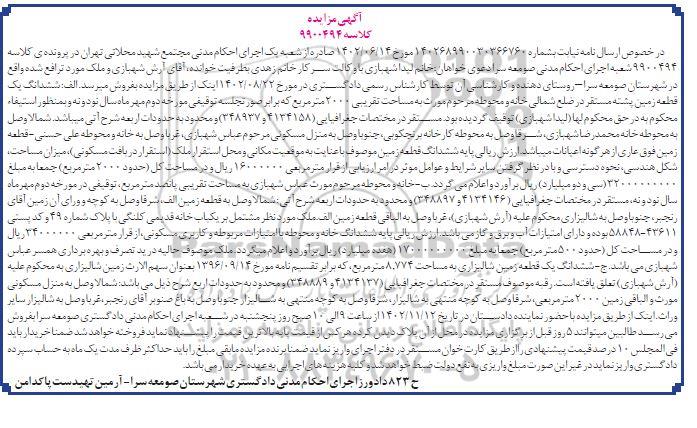 آگهی مزایده
کلاسه ۹۹۰۰۴۹۴
در خصوص ارسال نامه نیابت بشماره ۱۴۰۲۶۸۹۹۰۰۲۰۳۶۶۷۶۰ مورخ ۱۴۰۲/۰۶/۱۴ صادر از شعبه یک اجرای احکام مدنی مجتمع شهید محلاتی تهران در پرونده ی کلاسه
۹۹۰۰۴۹۴ شعبه اجرای احکام مدنی صومعه سرا دعوی خواهان: خانم لیدا شهبازی با وکالت سرکار خانم زهدی بطرفیت خوانده: آقای آرش شهبازی و ملک مورد ترافع شده واقع
در شهرستان صومعه سرا-روستای دهنده و کارشناسی آن توسط کارشناس رسمی دادگستری در مورخ ۱۴۰۲/۰۸/۲۲ اینک از طریق مزایده بفروش میرسد. الف: ششدانگ یک
قطعه زمین پشته مستقر در ضلع شمالی خانه و محوطه مرحوم مورث به مساحت تقریبی ۲۰۰۰ مترمربع که برابر صورتجلسه توقیفی مورخه دوم مهر ماه سال نود و نه و بمنظور استیفاء
محکوم به در حق محکوم لها (لیدا شهبازی) توقیف گردیده بود. مستقر در مختصات جغرافیایی (۴۱۳۴۱۵۸و۳۴۸۹۳۷) و محدود به حدودات اربعه شرح آتی میباشد. شمالا وصل
به محوطه خانه محمدرضا شهبازی، شرقا وصل به محوطه کارخانه برنجکوبی، جنوبا وصل به منزل مسکونی مرحوم عباس شهبازی، غربا وصل به خانه و محوطه علی حسنی-قطعه
زمین فوق عاری از هر گونه اعیانات میباشد. ارزش ریالی پایه ششدانگ قطعه زمین موصوف با عنایت به موقعیت مکانی و محل استقرار ملک (استقرار در بافت مسکونی)، میزان مساحت،
شکل هندسی، نحوه دسترسی و با در نظر گرفتن سایر شرایط و عوامل موثر در امر ارزیابی از قرار متر مربعی ۱۶۰۰۰۰۰۰ ریال و در مساحت کل (حدود ۲۰۰۰ مترمربع) جمعا به مبلغ
۳۲۰۰۰۰۰۰۰۰۰ (سی و دو میلیارد) ریال برآورد و اعلام می گردد. ب-خانه و محوطه مرحوم مورث عباس شهبازی به مساحت تقریبی پانصد مترمربع، توقیفی در مورخه دوم مهر ماه
سال نود و نه، مستقر در مختصات جغرافیایی (۴۱۳۴۱۴۶و۳۴۸۸۹۷) و محدود به حدودات اربعه شرح آتی: شمالا وصل به قطعه زمین الف، شرقا وصل به کوچه و ورای آن زمین آقای
رنجبر، جنوبا وصل به شالیزاری محکوم علیه (آرش شهبازی)، غربا وصل به الباقی قطعه زمین الف. ملک مورد نظر مشتمل بر یکباب خانه قدیمی کلنگی با پلاک شماره ۴۹ و کد پستی
۴۳۶۱۱-۵۸۸۴۸ بوده و دارای امتیازات آب و برق و گاز می باشد. ارزش ریالی پایه ششدانگ خانه و محوطه با امتیازات مربوطه و کاربری مسکونی، از قرار متر مربعی ۳۴۰۰۰۰۰۰ ریال
و در مساحت کل (حدود ۵۰۰ متر مربع) جمعا به مبلغ ۱۷۰۰۰۰۰۰۰۰۰ (هفده میلیارد) ریال برآورد و اعلام میگردد. ملک موصوف حالیه در ید تصرف و بهره برداری همسر عباس
شهبازی می باشد. ج-ششدانگ یک قطعه زمین شالیزاری به مساحت ۸,۷۷۴ مترمربع، که برابر تقسیم نامه مورخ ۱۳۹۶/۰۹/۱۴ بعنوان سهم الارث زمین شالیزاری به محکوم علیه
(آرش شهبازی) تعلق یافته است. رقبه موصوف مستقر در مختصات جغرافیایی (۴۱۳۴۱۳۷و۳۴۸۸۸۹) و محدود به حدودات اربع شرح ذیل می باشد: شمالا وصل به منزل مسکونی
مورث و الباقی زمین ۲۰۰۰ مترمربعی، شرقا وصل به کوچه منتهی به شالیزار، شرقا وصل به کوچه منتهی به شالیزار جنوبا وصل به باغ صنوبر آقای رنجبر، غربا وصل به شالیزار سایر
وراث. اینک از طریق مزایده با حضور نماینده دادستان در تاریخ ۱۴۰۲/۱۱/۱۲ از ساعت ۹ الی ۱۰ صبح روز پنجشنبه در شعبه اجرای احکام مدنی دادگستری صومعه سرا بفروش
می رسد طالبین میتوانند ۵ روز قبل از برگزاری مزایده در محل از آن پلاک دیدن کرده هر کس از قیمت پایه بالاترین قیمت را پیشنهاد نماید فروخته خواهد شد ضمنا خریدار باید
فی المجلس ۱۰ درصد قیمت پیشنهادی را از طریق کارت خوان مستقر در دفتر اجرای واریز نماید ضمنا برنده مزایده مابقی مبلغ را باید حداکثر ظرف مدت یک ماه به حساب سپرده
دادگستری واریز نماید در غیر این صورت مبلغ واریزی به نفع دولت ضبط خواهد شد و کلیه هزینه های اجرایی به عهده خریدار می باشد.
ح ۸۲۳ دادورز اجرای احکام مدنی دادگستری شهرستان صومعه سرا - آرمین تهیدست پاکدامن